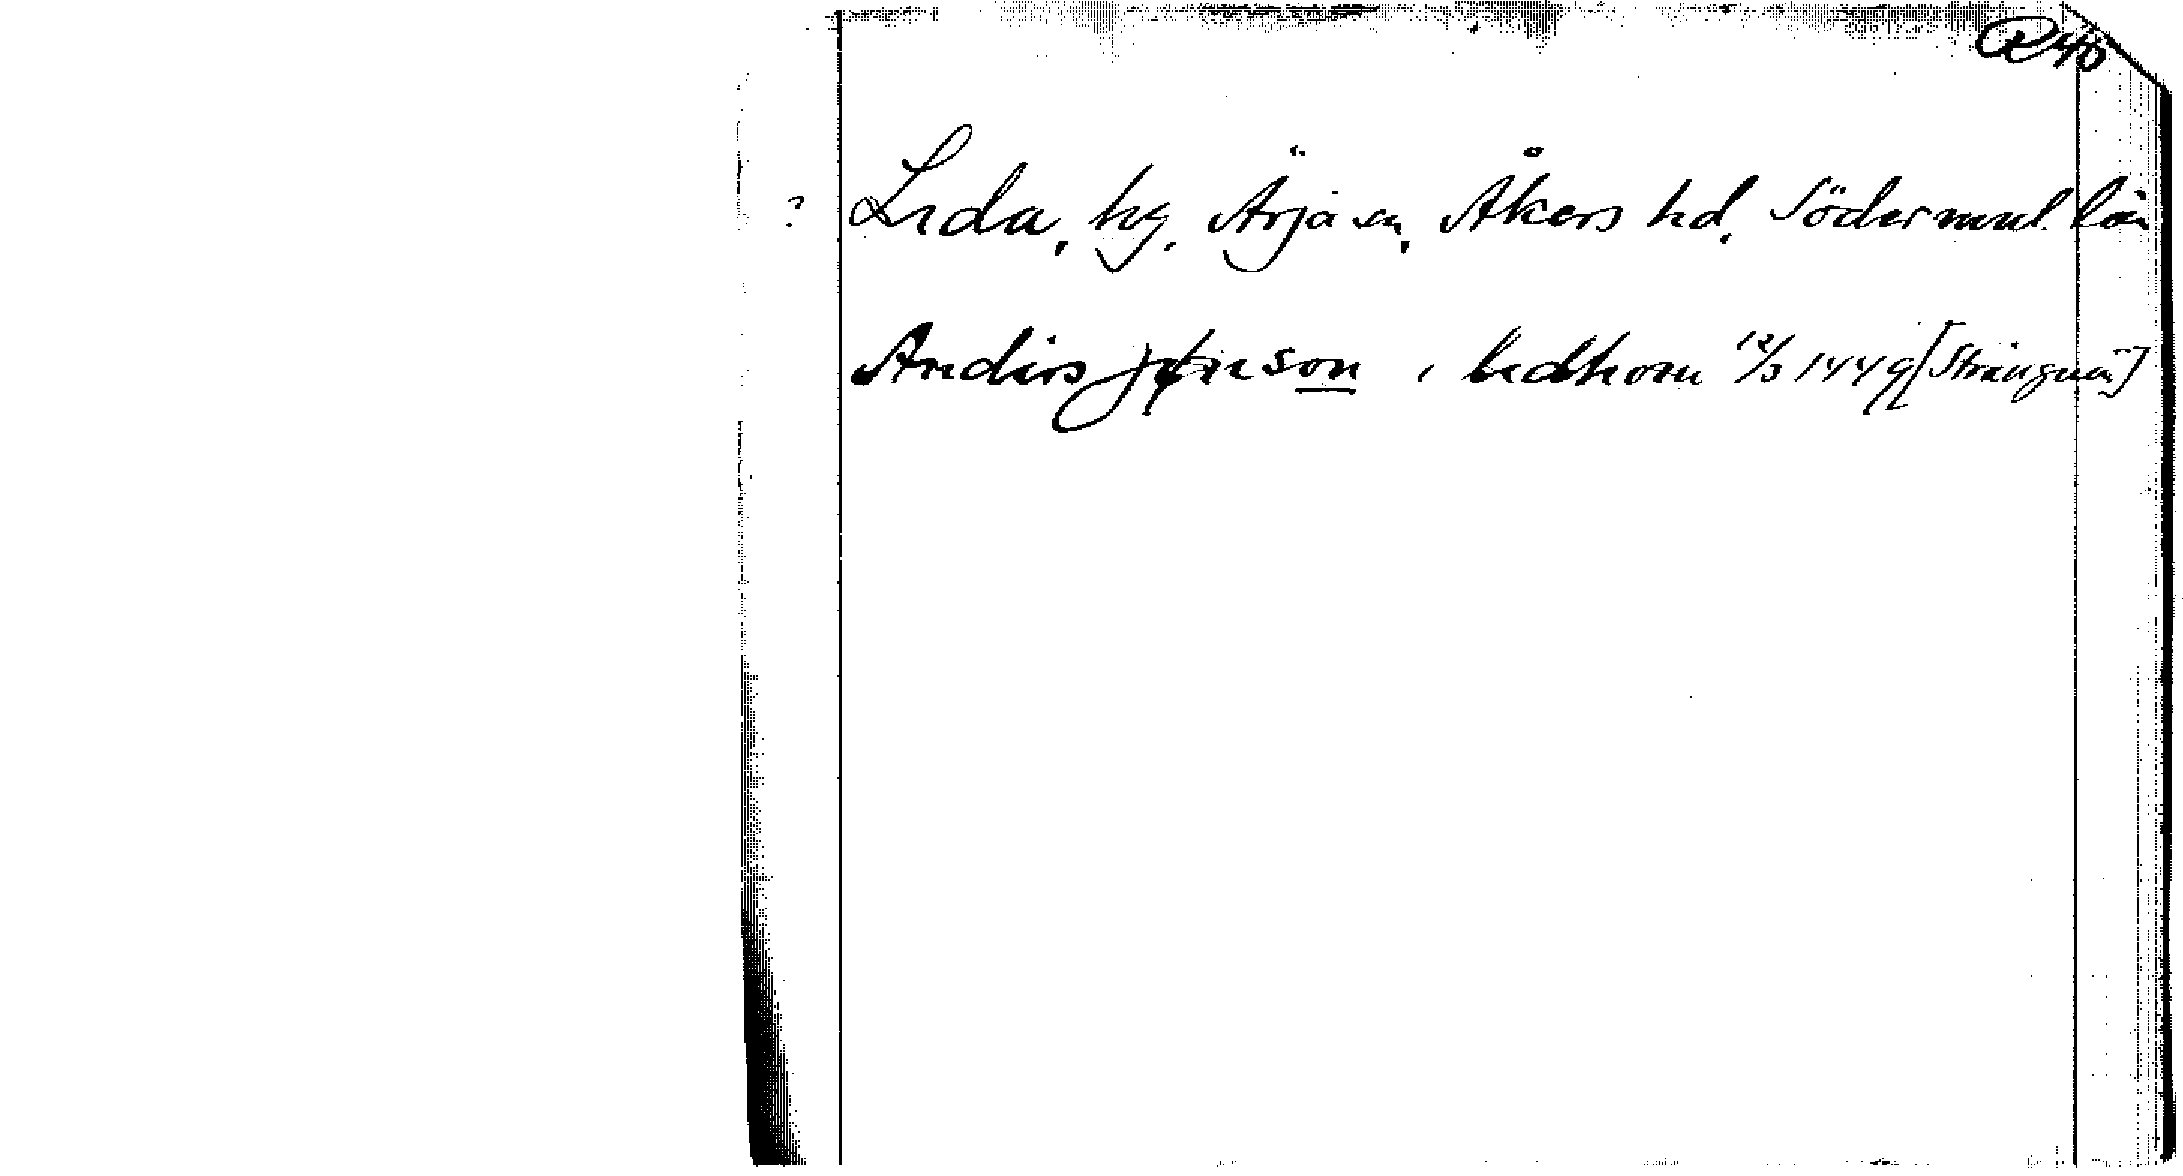 R40
? Leda, hg, Ärja sn, Åkers hd, Södermanl. län
Anders Jønsson i ledhom 12/3 1449 [Strängnäs]